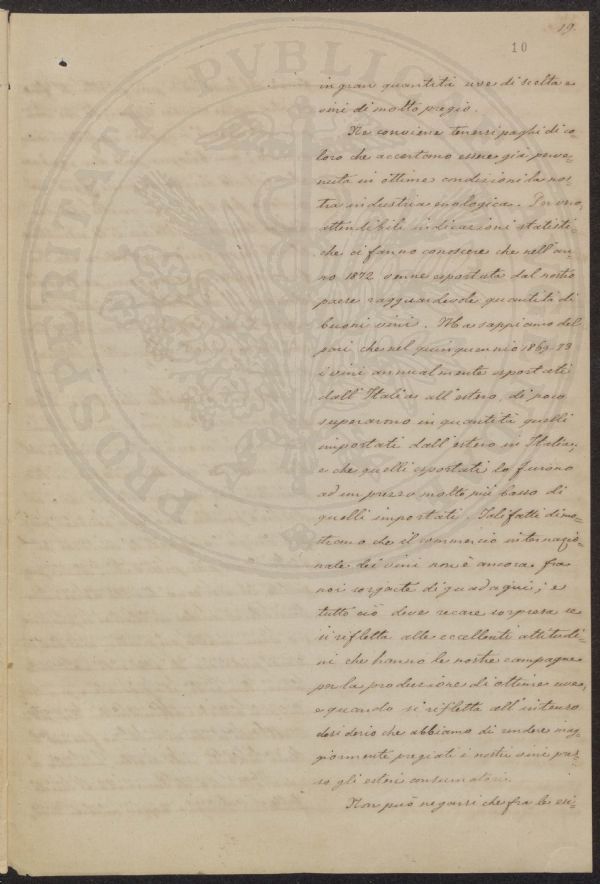 19.
10
in gran quantità uve di scelta e
vini di molto pregio.
Ne conviene tenersi paghi di co=
loro che accertano essere già perve=
nuta in ottime condizioni la nos=
tra industria enologica. In vero,
attendibili indicazioni statisti=
che ci fanno conoscere che nell'an=
no 1872 venne esportata dal nostro
paese ragguardevole quantità di
buoni vini. Ma sappiamo del
pari che nel quinquennio 1869-73
i vini annualmente esportati
dall'Italia all'estero, di poco
superarono in quantità quelli
importati dall'estero in Italia,
e che quelli esportati lo furono
ad un prezzo molto più basso di
quelli importati. Tali fatti dimo=
strano che il commercio internazio=
nale dei vini non è ancora fra
noi sorgente di guadagni; e
tutto ciò deve recare sorpresa se
si rifletta alle eccellenti attitudi=
ni che hanno le nostre campagne
per la produzione di ottime uve,
e quando si rifletta all'intenso
desiderio che abbiamo di rendere mag=
giormente pregiati i nostri vini pres=
so gli esteri consumatori.
Non può negarsi che fra le esi=
PROSPERITATI PVBLICAE